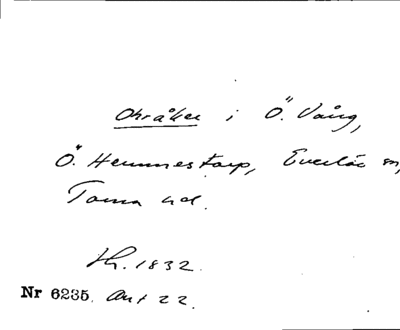 Okråken i Ö. Vång,
Ö. Hemmestorp, Everlöv sn,
Torna hd.
Hr. 1832.
Nr 6235. Akt 22.